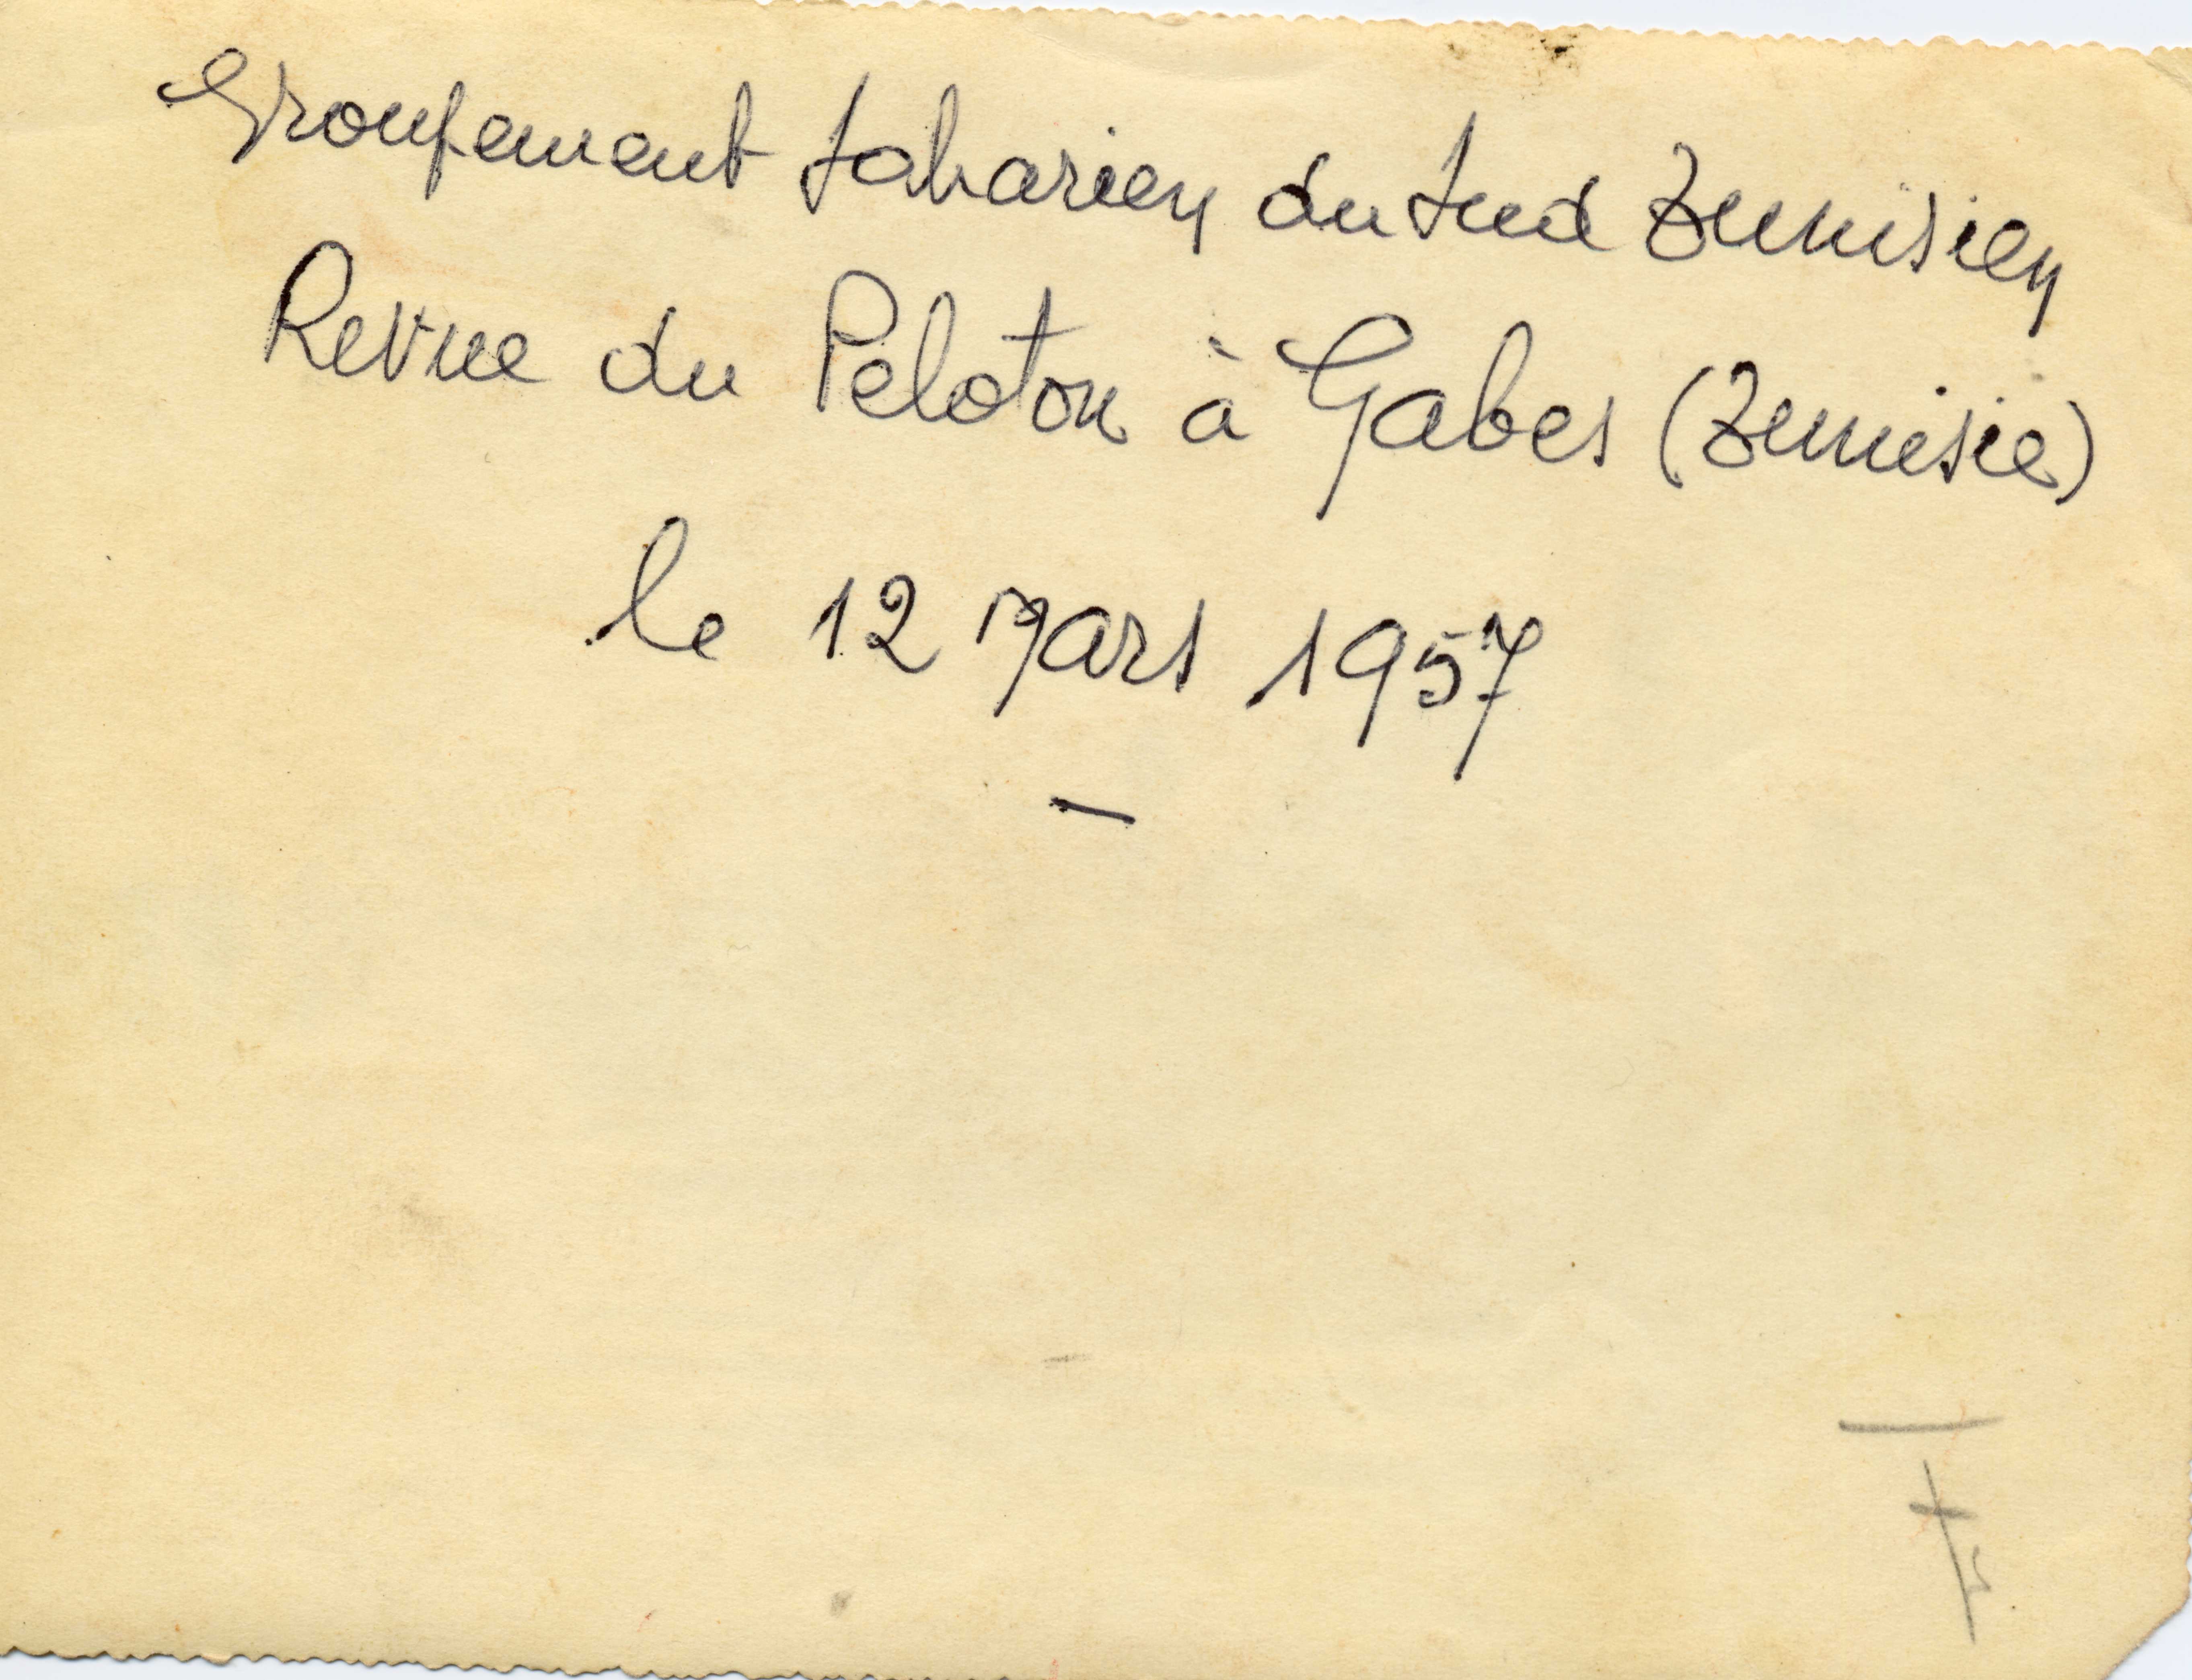 Groupement Saharien du Sud Tunisien
Revue du Peloton à Gabes (Tunisie)
le 12 Mars 1957
—